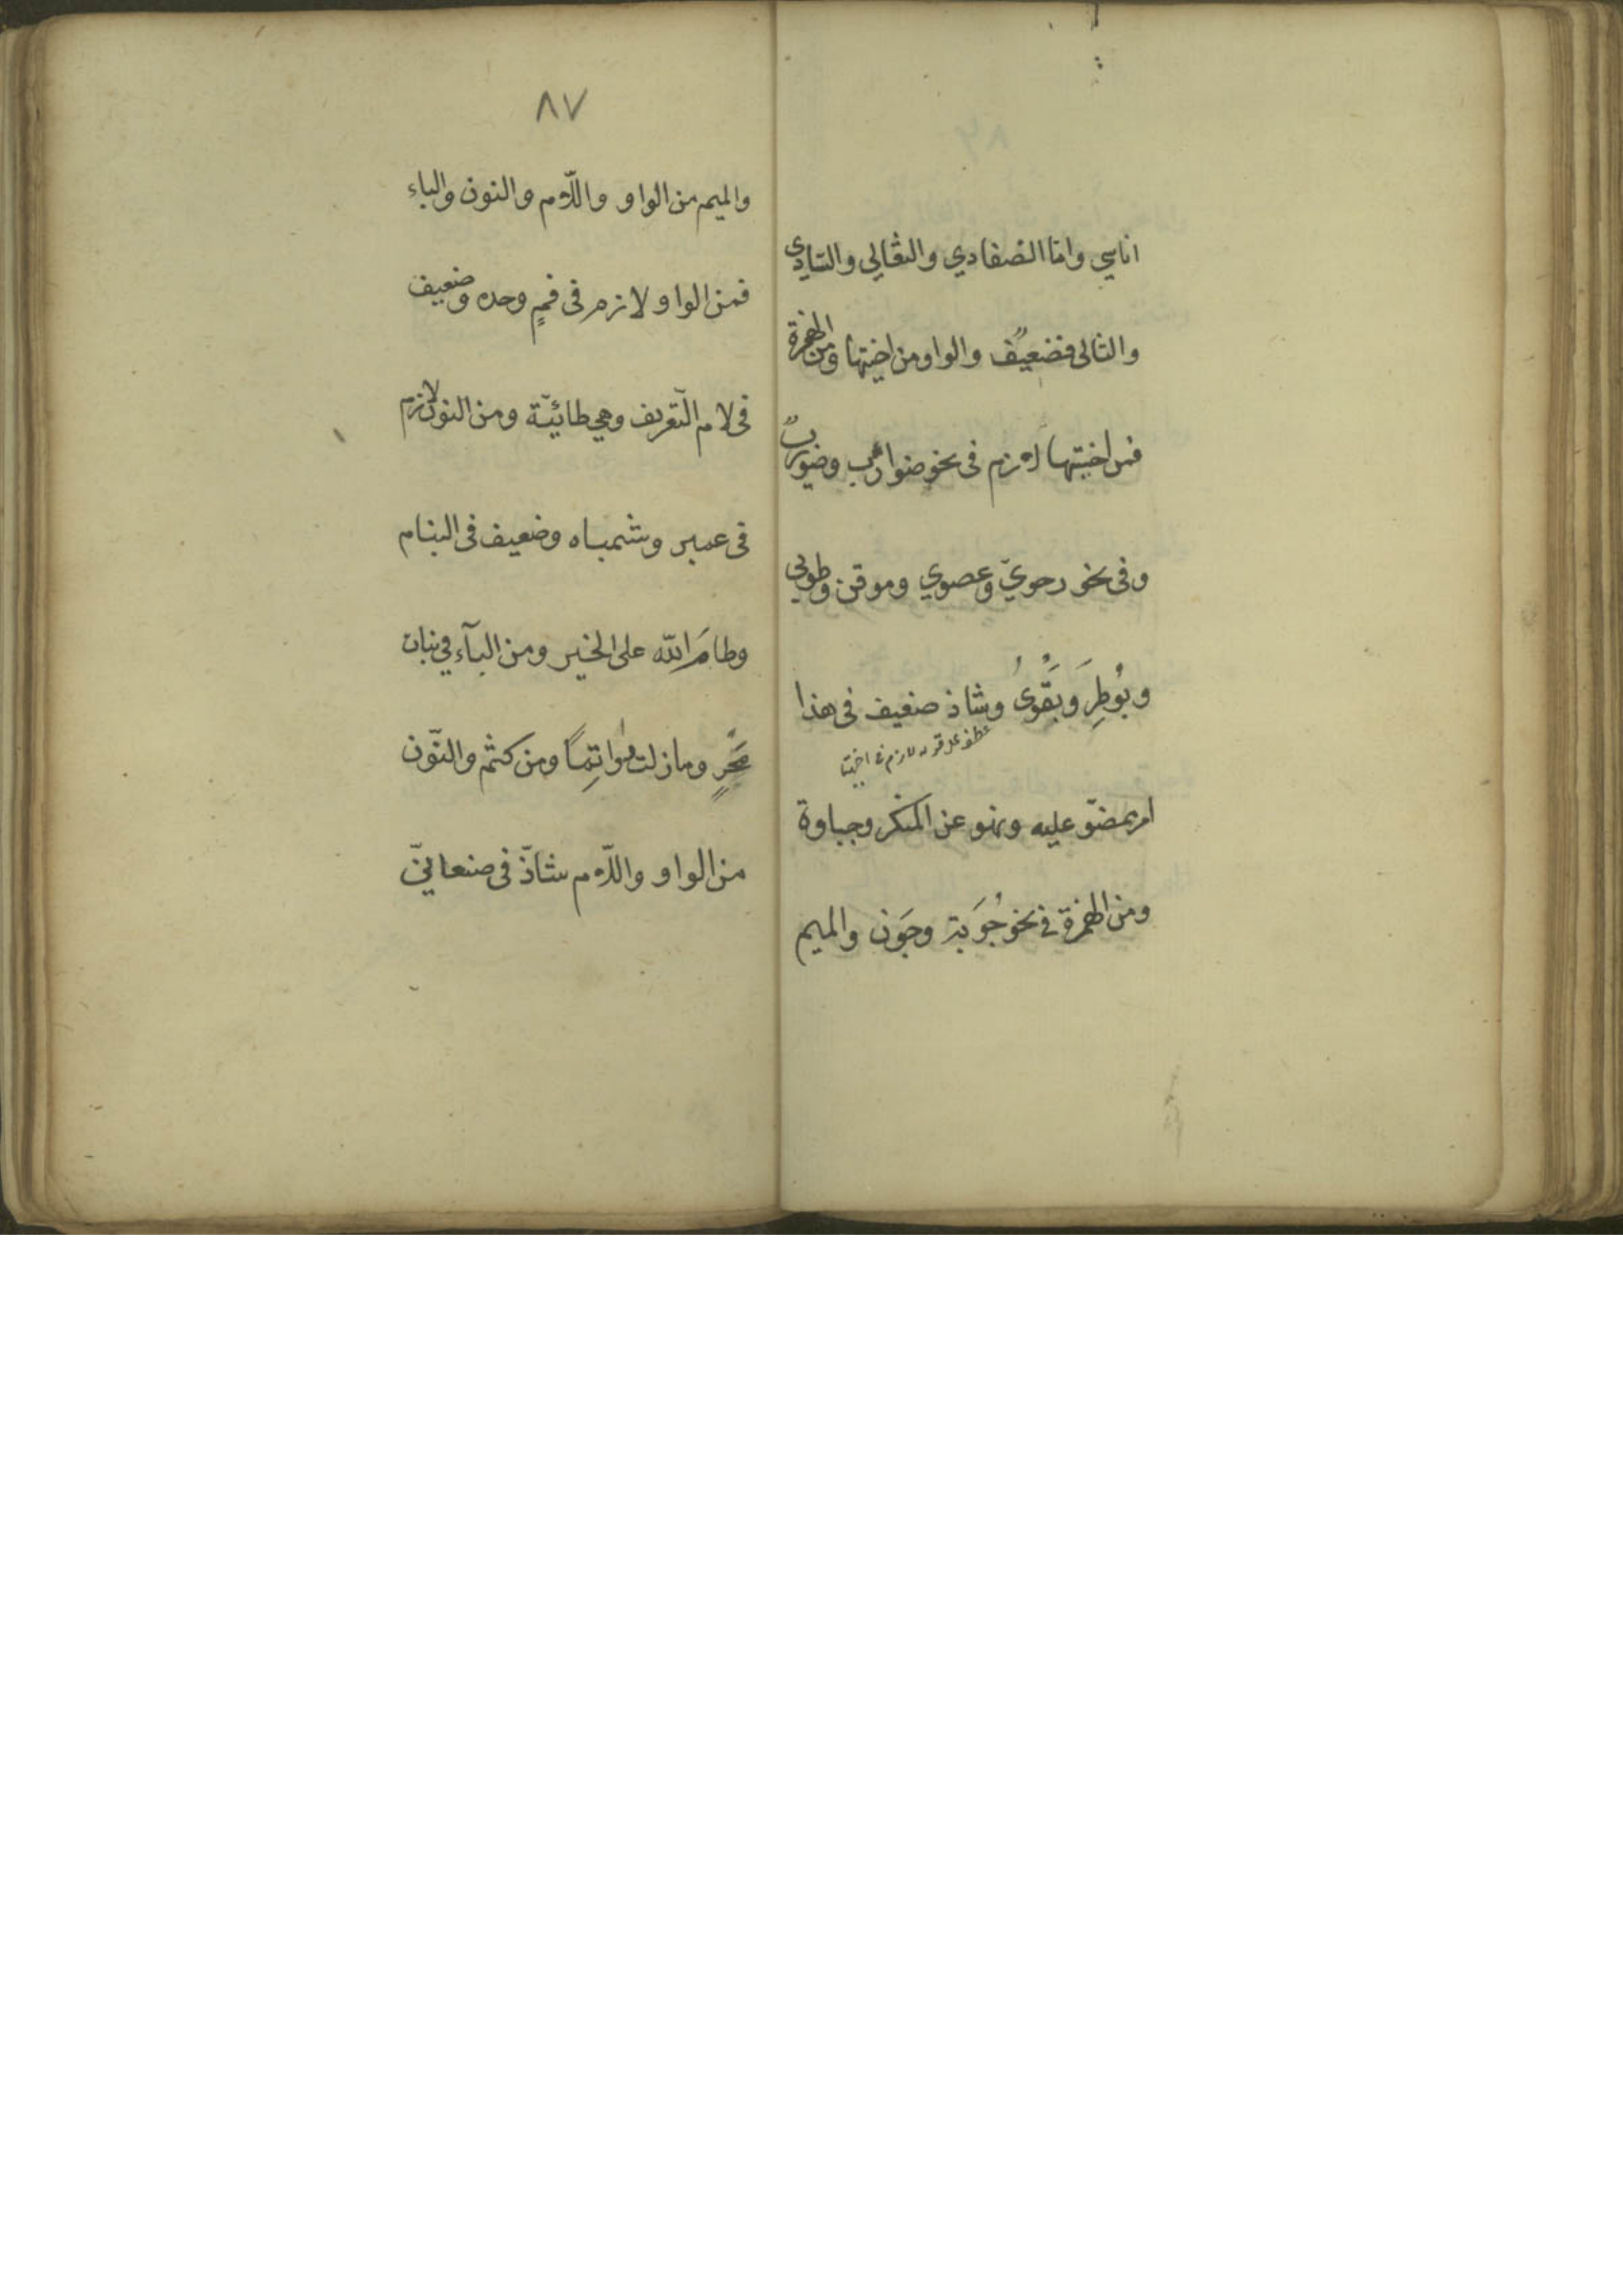 اناسي وامّا الضفادي والثعالي والسّادي
والثالي فضعيفٌ والواو من اختيها ومن الهمزة
فمن اختيها لازم في نحو ضوارب وضويربٌ
وفي نحو رحويّ وعصوي وموقن وطوبي
وبُوطِرَ وبَقْوىُ وشاذ ضعيف في هذا
عطف على قوله لازم في اختيها
امر ممضوّ عليه ونهو عن المنكر وجباوة
ومن الهمزة في نحو جُوَنة وجَوَن والميم
٨٧
والميم من الواو واللّام والنون والباء
فمن الواو لازم في فمٍ وحده وضعيف
في لام التّعريف وهي طائيّة ومن النون لازم
في عمبر وشمباء وضعيف في البنام
وطامَه الله على الخير ومن البآء في بنات
مَخْرٍ وما زلت راتِمًا ومن كثم والنّون
من الواو واللّام شاذّ في صنعانيّ